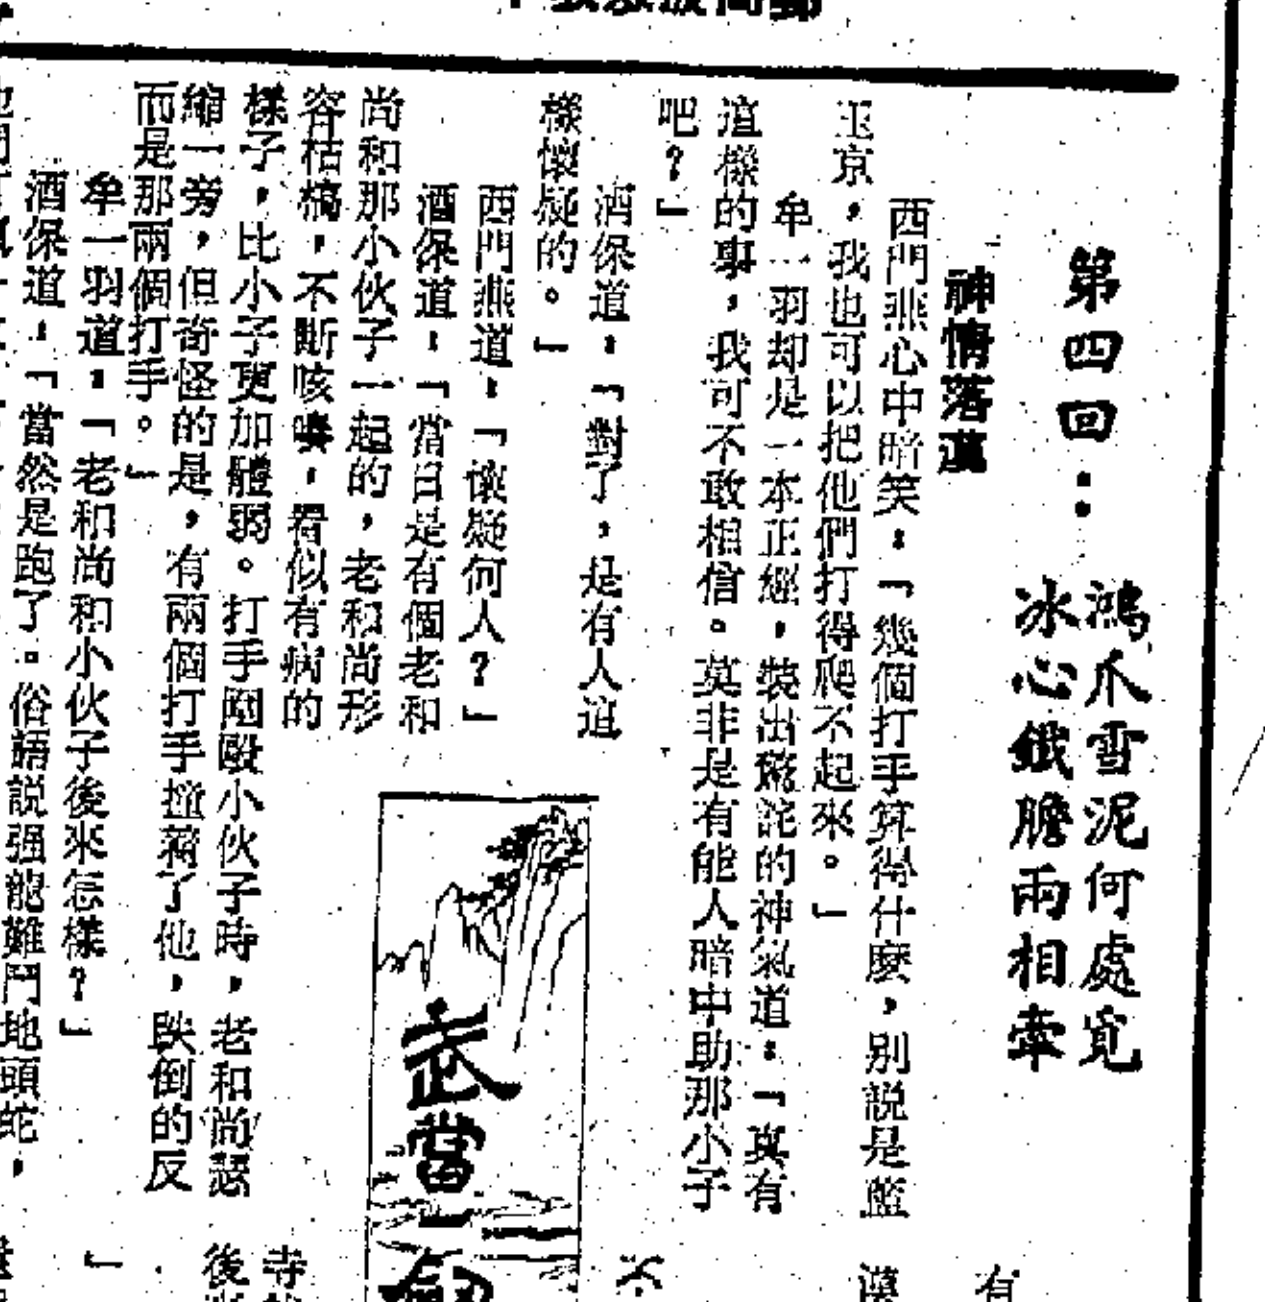 第四回：
鴻爪雪泥何處覓
冰心鐵膽兩相牽
神情落寞
西門燕心中暗笑：「幾個打手算得什麼，別説是藍
玉京，我也可以把他們打得爬不起來。」
牟一羽却是一本正經，裝出驚詫的神氣道：「真有
這樣的事，我可不敢相信。莫非是有能人暗中助那小子
吧？」
酒保道：「對了，是有人這
樣懷疑的。」
西門燕道：「懷疑何人？」
酒保道：「當日是有個老和
尚和那小伙子一起的，老和尚形
容枯槁，不斷咳嗽，看似有病的
樣子，比小子更加體弱。打手圍毆小伙子時，老和尚瑟
縮一旁，但奇怪的是，有兩個打手撞着了他，跌倒的反
而是那兩個打手。」
牟一羽道：「老和尚和小伙子後來怎樣？」
酒保道：「當然是跑了。俗語説强龍難鬥地頭蛇，
武當一劍
有
不
寺
後